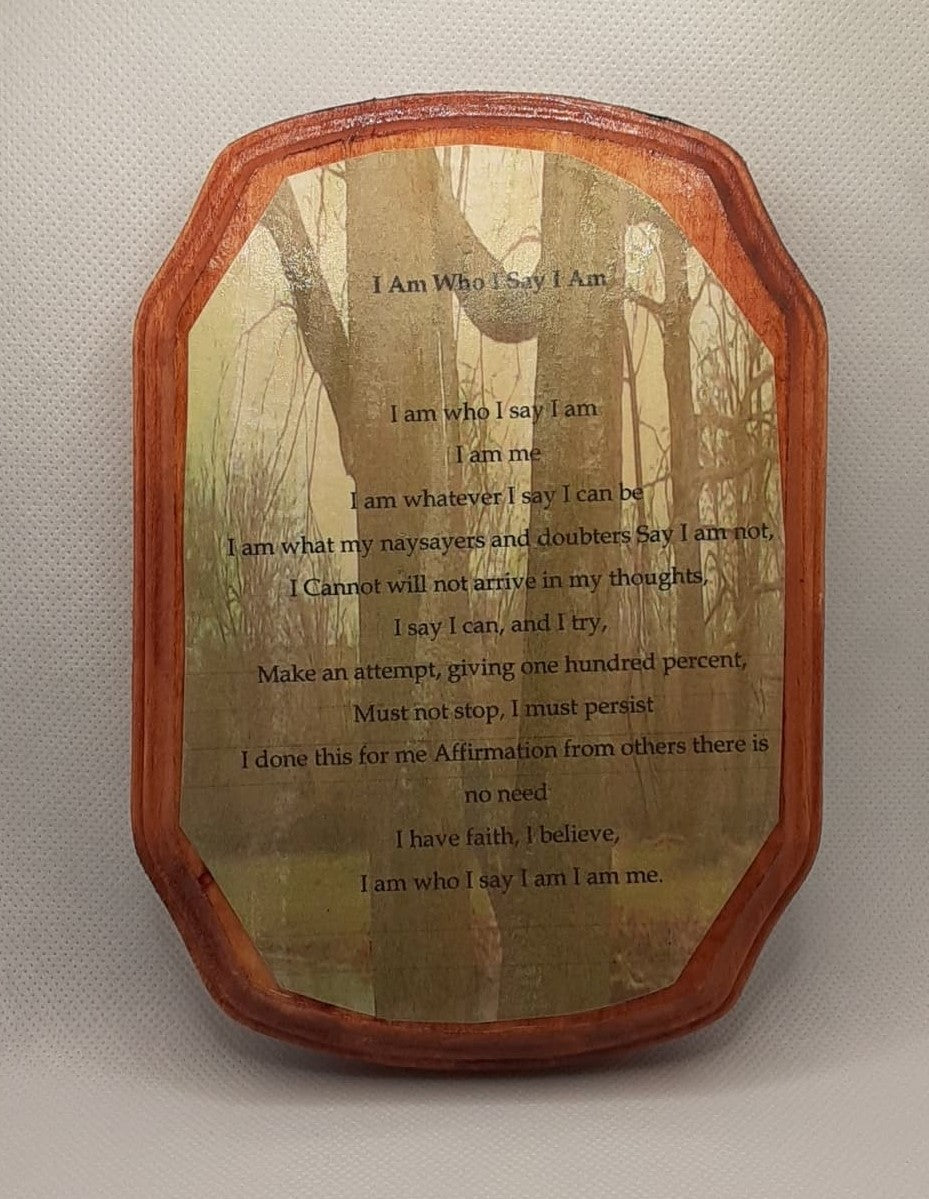 I Am Who I Say I Am
I am who I say I am
I am me
I am whatever I say I can be
I am what my naysayers and doubters Say I am not,
I Cannot will not arrive in my thoughts,
I say I can, and I try,
Make an attempt, giving one hundred percent,
Must not stop, I must persist
I done this for me Affirmation from others there is
no need
I have faith, I believe,
I am who I say I am I am me.